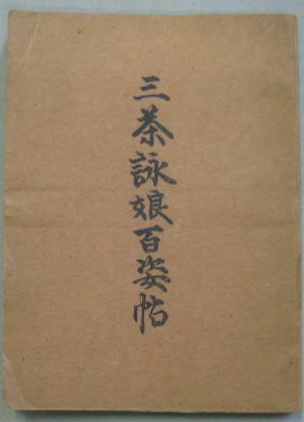 三茶詠娘百姿帖